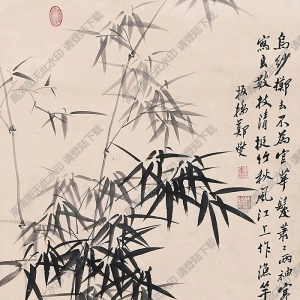 烏紗擲去不為官華髮蕭〻兩袖寒
寫去數枝清挺竹秋風江上作漁竿
板橋鄭燮